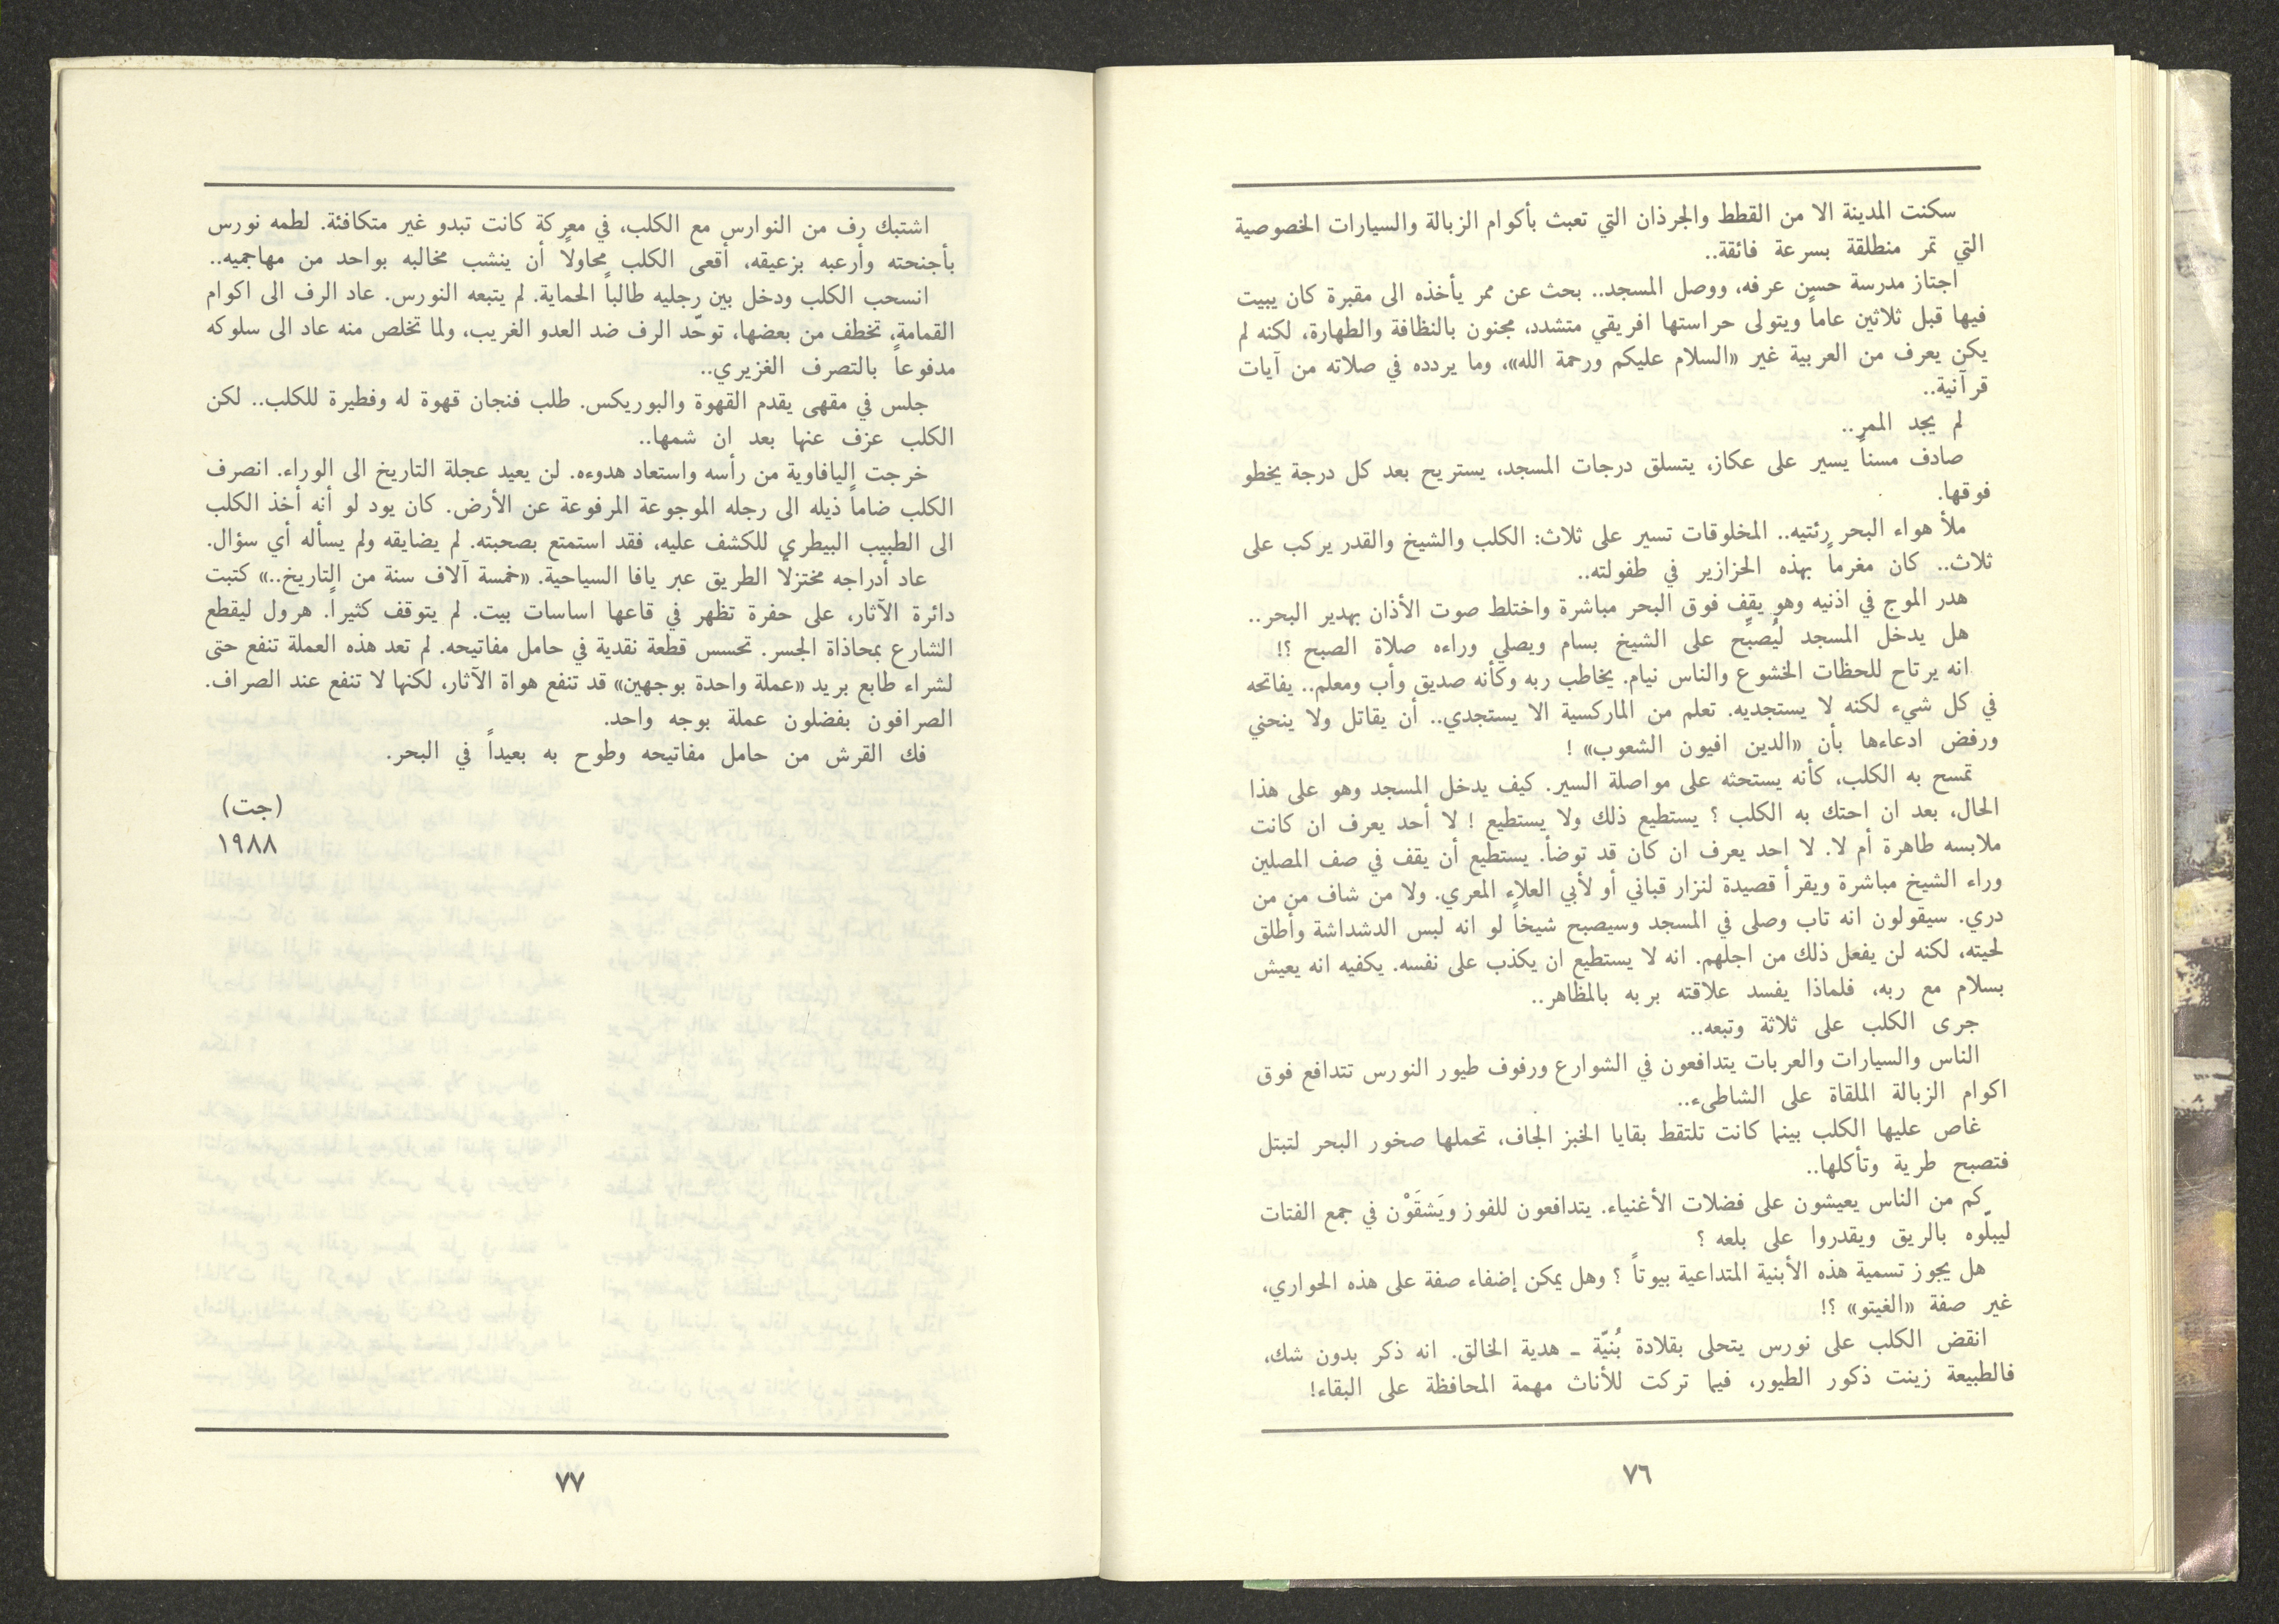 سكنت المدينة الا من القطط والجرذان التي تعبث بأكوام الزبالة والسيارات الخصوصية
التي تمر منطلقة بسرعة فائقة..
اجتاز مدرسة حسن عرفه، ووصل المسجد.. بحث عن ممر يأخذه الى مقبرة كان يبيت
فيها قبل ثلاثين عاماً ويتولى حراستها افريقي متشدد، مجنون بالنظافة والطهارة، لكنه لم
يكن يعرف من العربية غير «السلام عليكم ورحمة الله»، وما يردده في صلاته من آيات
قرآنية..
لم يجد الممر..
صادف مسناً يسير على عكاز، يتسلق درجات المسجد، يستريح بعد كل درجة يخطو
فوقها.
ملأ هواء البحر رئتيه.. المخلوقات تسير على ثلاث: الكلب والشيخ والقدر يركب على
ثلاث.. كان مغرماً بهذه الحزازير في طفولته..
هدر الموج في اذنيه وهو يقف فوق البحر مباشرة واختلط صوت الأذان بهدير البحر..
هل يدخل المسجد ليُصبّح على الشيخ بسام ويصلي وراءه صلاة الصبح ؟!
انه يرتاح للحظات الخشوع والناس نيام. يخاطب ربه وكأنه صديق وأب ومعلم.. يفاتحه
في كل شيء لكنه لا يستجديه. تعلم من الماركسية الا يستجدي.. أن يقاتل ولا ينحني
ورفض ادعاءها بأن «الدين افيون الشعوب» !
تمسح به الكلب، كأنه يستحثه على مواصلة السير. كيف يدخل المسجد وهو على هذا
الحال، بعد ان احتك به الكلب ؟ يستطيع ذلك ولا يستطيع ! لا أحد يعرف ان كانت
ملابسه طاهرة أم لا. لا احد يعرف ان كان قد توضأ. يستطيع أن يقف في صف المصلين
وراء الشيخ مباشرة ويقرأ قصيدة لنزار قباني أو لأبي العلاء المعري. ولا من شاف من من
دري. سيقولون انه تاب وصلى في المسجد وسيصبح شيخاً لو انه لبس الدشداشة وأطلق
لحيته، لكنه لن يفعل ذلك من اجلهم. انه لا يستطيع ان يكذب على نفسه. يكفيه انه يعيش
بسلام مع ربه، فلماذا يفسد علاقته بربه بالمظاهر..
جرى الكلب على ثلاثة وتبعه..
الناس والسيارات والعربات يتدافعون في الشوارع ورفوف طيور النورس تتدافع فوق
اكوام الزبالة الملقاة على الشاطىء..
غاص عليها الكلب بينما كانت تلتقط بقايا الخبز الجاف، تحملها صخور البحر لتبتل
فتصبح طرية وتأكلها..
كم من الناس يعيشون على فضلات الأغنياء. يتدافعون للفوز ويَشقَوْن في جمع الفتات
ليبلّوه بالريق ويقدروا على بلعه ؟
هل يجوز تسمية هذه الأبنية المتداعية بيوتاً ؟ وهل يمكن إضفاء صفة على هذه الحواري،
غير صفة «الغيتو» ؟!
انقض الكلب على نورس يتحلى بقلادة بُنيّة ـ هدية الخالق. انه ذكر بدون شك،
فالطبيعة زينت ذكور الطيور، فيما تركت للأناث مهمة المحافظة على البقاء!
٧٦
اشتبك رف من النوارس مع الكلب، في معركة كانت تبدو غير متكافئة. لطمه نورس
بأجنحته وأرعبه بزعيقه، أقعى الكلب محاولاً أن ينشب مخالبه بواحد من مهاجميه..
انسحب الكلب ودخل بين رجليه طالباً الحماية. لم يتبعه النورس. عاد الرف الى اكوام
القمامة، تخطف من بعضها، توحّد الرف ضد العدو الغريب، ولما تخلص منه عاد الى سلوكه
مدفوعاً بالتصرف الغزيري..
جلس في مقهى يقدم القهوة والبوريكس. طلب فنجان قهوة له وفطيرة للكلب.. لكن
الكلب عزف عنها بعد ان شمها..
خرجت اليافاوية من رأسه واستعاد هدوءه. لن يعيد عجلة التاريخ الى الوراء. انصرف
الكلب ضاماً ذيله الى رجله الموجوعة المرفوعة عن الأرض. كان يود لو أنه أخذ الكلب
الى الطبيب البيطري للكشف عليه، فقد استمتع بصحبته. لم يضايقه ولم يسأله أي سؤال.
عاد أدراجه مختزلاً الطريق عبر يافا السياحية. «خمسة آلاف سنة من التاريخ..» كتبت
دائرة الآثار، على حفرة تظهر في قاعها اساسات بيت. لم يتوقف كثيراً. هرول ليقطع
الشارع بمحاذاة الجسر. تحسس قطعة نقدية في حامل مفاتيحه. لم تعد هذه العملة تنفع حتى
لشراء طابع بريد «عملة واحدة بوجهين» قد تنفع هواة الآثار، لكنها لا تنفع عند الصراف.
الصرافون بفضلون عملة بوجه واحد.
فك القرش من حامل مفاتيحه وطوح به بعيداً في البحر.
(جت)
١٩٨٨
٧٧